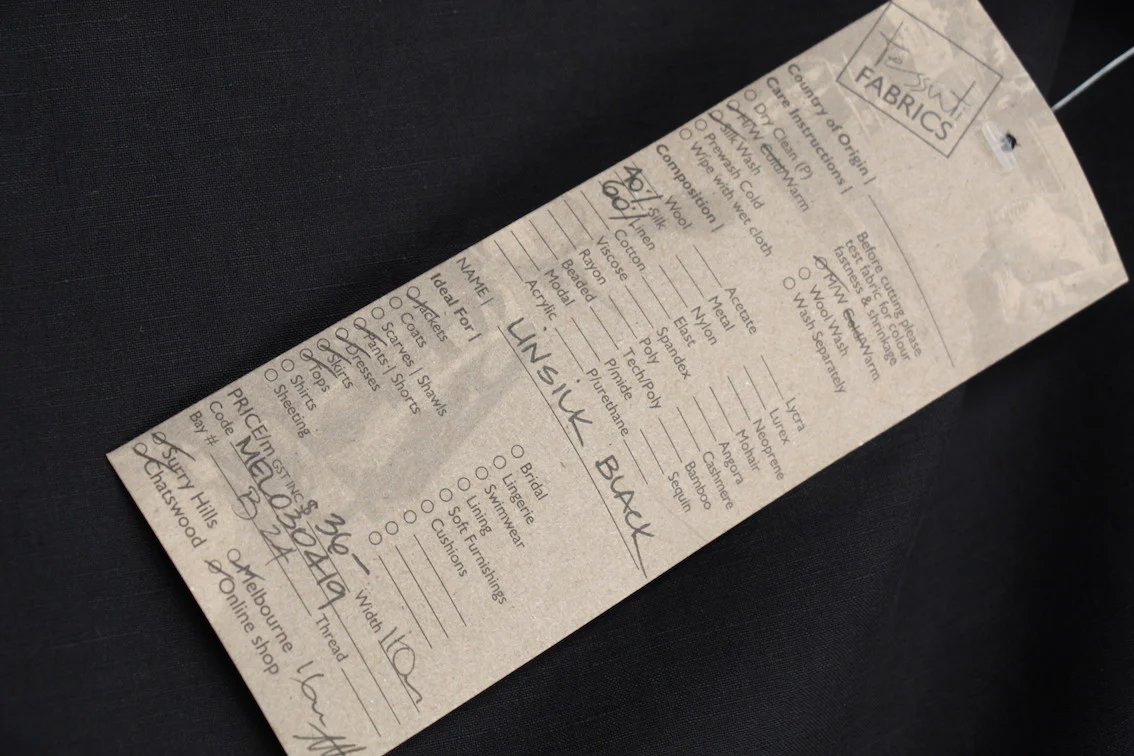 Tessuti
FABRICS
Country of Origin |
Care Instructions |
Dry Clean (P)
H/W Cold/Warm
Silk Wash
Prewash Cold
Wipe with wet cloth
Before cutting please
test fabric for colour
fastness & shrinkage
M/W Cold/Warm
Wool Wash
Wash Separately
Composition |
Wool
40% Silk
60% Linen
Cotton
Viscose
Rayon
Beaded
Modal
Acrylic
Acetate
Metal
Nylon
Elast
Spandex
Poly
Tech/Poly
P/mide
P/urethane
Lycra
Lurex
Neoprene
Mohair
Angora
Cashmere
Bamboo
Sequin
NAME | LINSILK BLACK
Ideal For |
Jackets
Coats
Scarves | Shawls
Pants | Shorts
Dresses
Skirts
Tops
Shirts
Sheeting
Bridal
Lingerie
Swimwear
Lining
Soft Furnishings
Cushions
PRICE/m GST INC $ 36-
Width
Code MEL030419
Thread
Bay # B 24
Surry Hills
Chatswood
Melbourne
Online shop